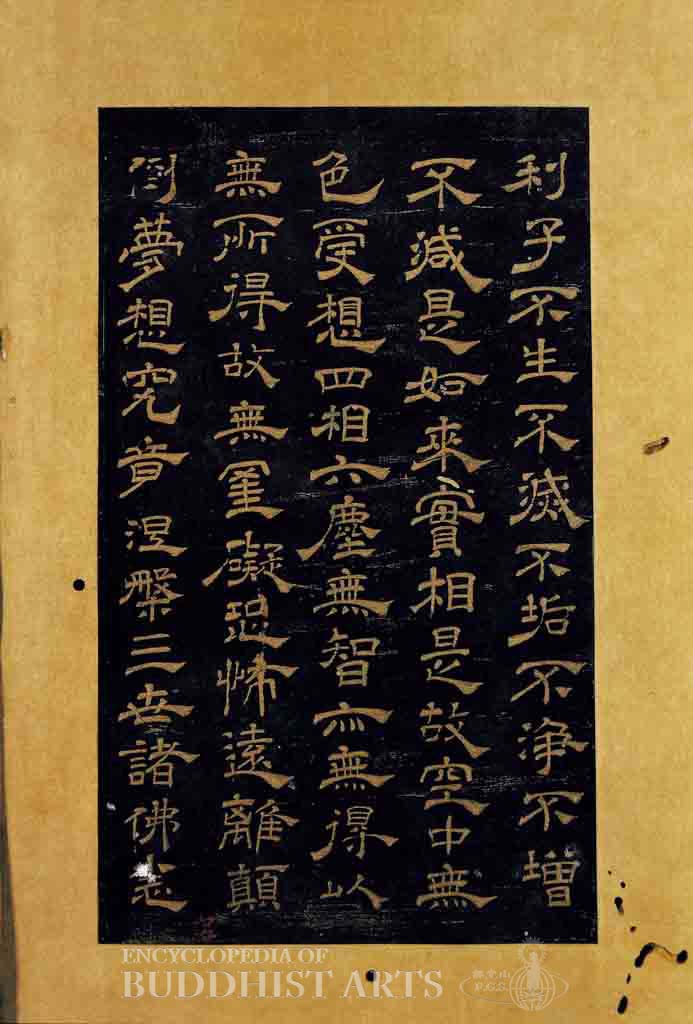 利子不生不滅不垢不淨不增
不減是如來實相是故空中無
色受想四相六塵無智亦無得以
無所得故無罣礙恐怖遠離顛
倒夢想究竟涅槃三世諸佛志
ENCYCLOPEDIA OF
BUDDHIST ARTS
佛光山
F.G.S.